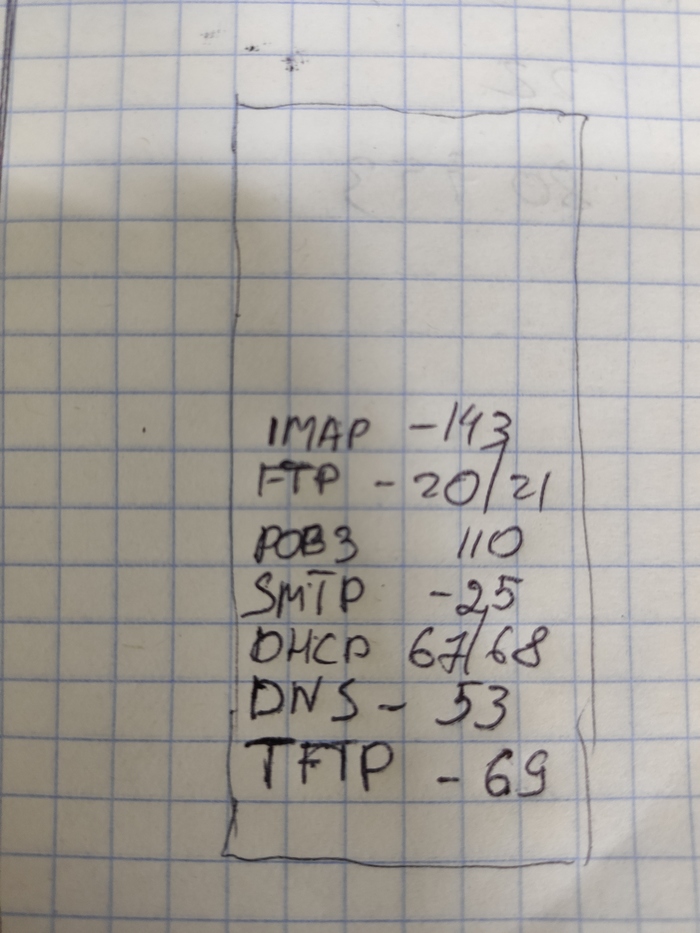 IMAP - 143
FTP - 20/21
POB3 110
SMTP - 25
DHCP 67/68
DNS - 53
TFTP - 69